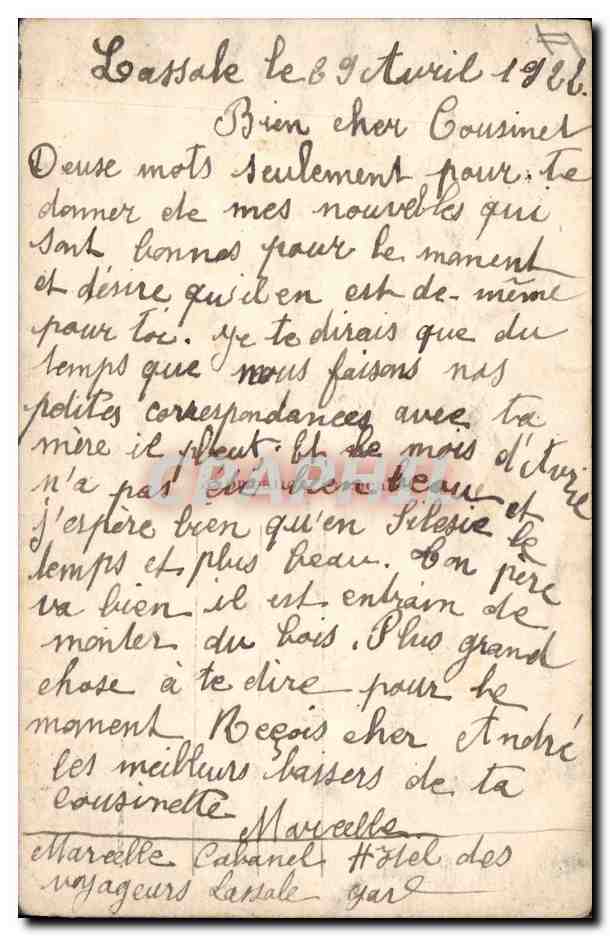 Lassale le 29 Avril 1922.
Bien cher Cousinet
Deuse mots seulement pour te
donner de mes nouvelles qui
sont bonnes pour le moment
et désire qu'il en est de-même
pour toi. Je te dirais que du
temps que nous faisons nos
petites correspondances avec ta
mère il pleut. Et le mois d'Avril
n'a pas été bien beau et
j'espère bien qu'en Silesie le
temps et plus beau. Ton père
va bien il est entrain de
monter du bois. Plus grand
chose à te dire pour le
moment Reçois cher André
les meilleurs baisers de ta
cousinette
Marcelle
Marcelle Cabanel Hôtel des
voyageurs Lassale gare
CPAPHIL